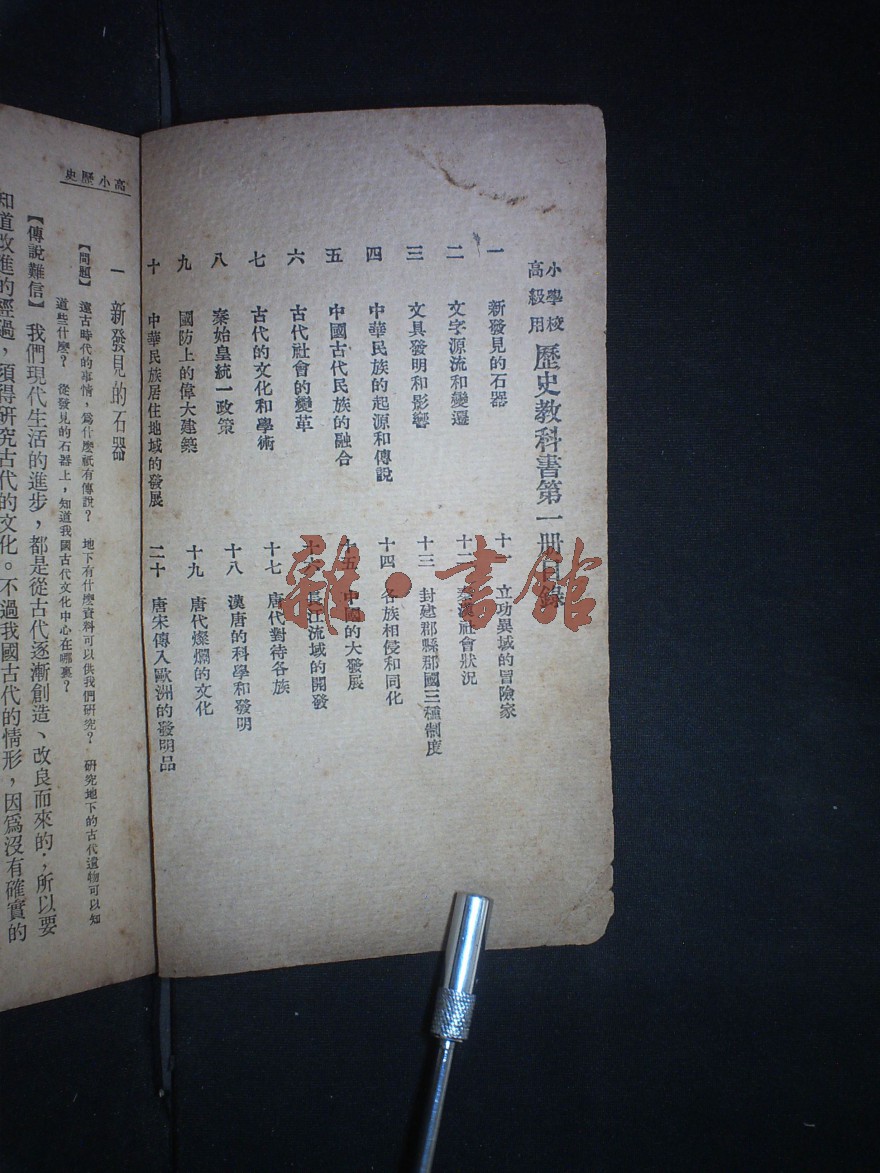 小學校高級用 歷史教科書第一冊目錄
一 新發見的石器
二 文字源流和變遷
三 文具發明和影響
四 中華民族的起源和傳說
五 中國古代民族的融合
六 古代社會的變革
七 古代的文化和學術
八 秦始皇統一政策
九 國防上的偉大建築
十 中華民族居住地域的發展
十一 立功異域的冒險家
十二 秦漢社會狀況
十三 封建郡縣郡國三種制度
十四 各族相侵和同化
十五 中國的大發展
十六 長江流域的開發
十七 唐代對待各族
十八 漢唐的科學和發明
十九 唐代燦爛的文化
二十 唐宋傳入歐洲的發明品
雜·書館
高小歷史
一 新發見的石器
【問題】 遠古時代的事情，爲什麼祇有傳說？ 地下有什麼資料可以供我們研究？ 研究地下的古代遺物可以知
道些什麼？ 從發見的石器上，知道我國古代文化中心在哪裏？
【傳說難信】 我們現代生活的進步，都是從古代逐漸創造、改良而來的；所以要
知道改進的經過，須得研究古代的文化。不過我國古代的情形，因爲沒有確實的